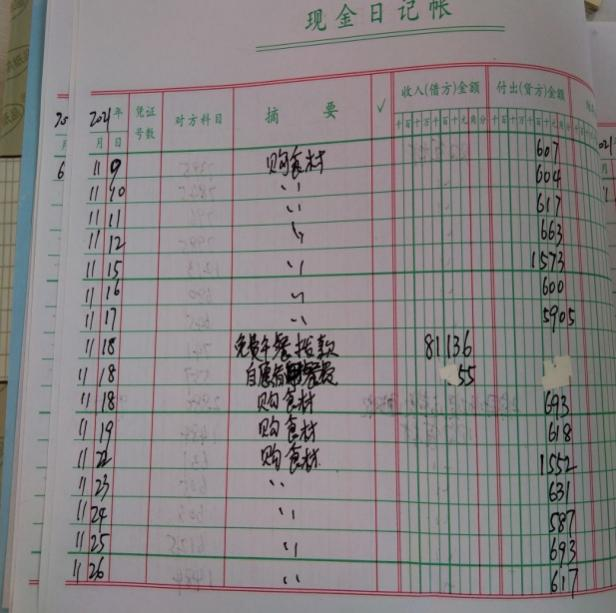 现金日记帐
2021年 凭证号数 对方科目 摘要 √ 收入(借方)金额 付出(贷方)金额
月 日 千百十万千百十元角分 千百十万千百十元角分
11 9 购食材 607
11 10 〃 604
11 11 〃 617
11 12 〃 663
11 15 〃 1573
11 16 〃 600
11 17 〃 5905
11 18 免费午餐拨款 81136
11 18 自愿 餐费 55
11 18 购食材 693
11 19 购食材 618
11 22 购食材 1552
11 23 〃 631
11 24 〃 587
11 25 〃 693
11 26 〃 617